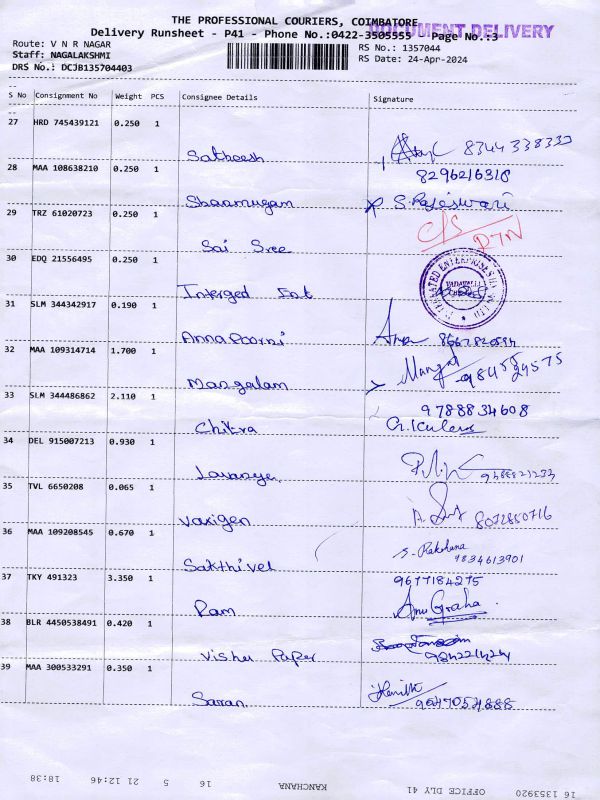 THE PROFESSIONAL COURIERS, COIMBATORE
DOCUMENT DELIVERY
Delivery Runsheet - P41 - Phone No.:0422-3505555 Page No.:3
Route: V N R NAGAR
Staff: NAGALAKSHMI
DRS No.: DCJB135704403
RS No.: 1357044
RS Date: 24-Apr-2024
S No Consignment No Weight PCS Consignee Details Signature
27 HRD 745439121 0.250 1
Satheesh 8344338333
28 MAA 108638210 0.250 1 8296216318
Shanmugam S.Rajeswari
29 TRZ 61020723 0.250 1 C/S
Sai Sree RTN
30 EDQ 21556495 0.250 1
Interged Ent
31 SLM 344342917 0.190 1
Annapoorni
32 MAA 109314714 1.700 1
Mangalam
33 SLM 344486862 2.110 1 9788834608
Chitra
34 DEL 915007213 0.930 1
Lavanya
35 TVL 6650208 0.065 1
Vaxigen 8072850716
36 MAA 109208545 0.670 1 S. Rakshana
Sakthivel 9834613901
37 TKY 491323 3.350 1 9677184275
Ram Anu Graha.
38 BLR 4450538491 0.420 1
Vishu Paper
39 MAA 300533291 0.350 1
Saran
16 1353920 OFFICE DLY 41 KANCHANA 16 5 21 12:46 18:38